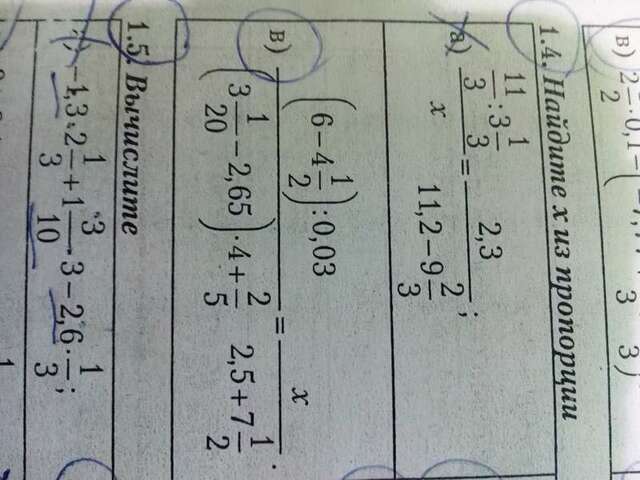 в) 2 1/2 : 0,1 −
1.4. Найдите x из пропорции
а) (11/3 : 3 1/3)/x = 2,3/(11,2 − 9 2/3);
в) ((6 − 4 1/2) : 0,03)/((3 1/20 − 2,65) · 4 + 2/5) = x/(2,5 + 7 1/2).
1.5. Вычислите
−1,3 · 2 1/3 + 1 3/10 · 3 − 2,6 · 1/3;